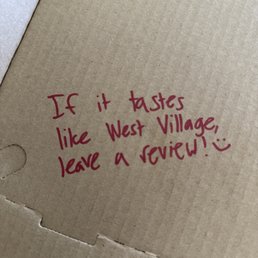 If it tastes
like West Village,
leave a review! :)